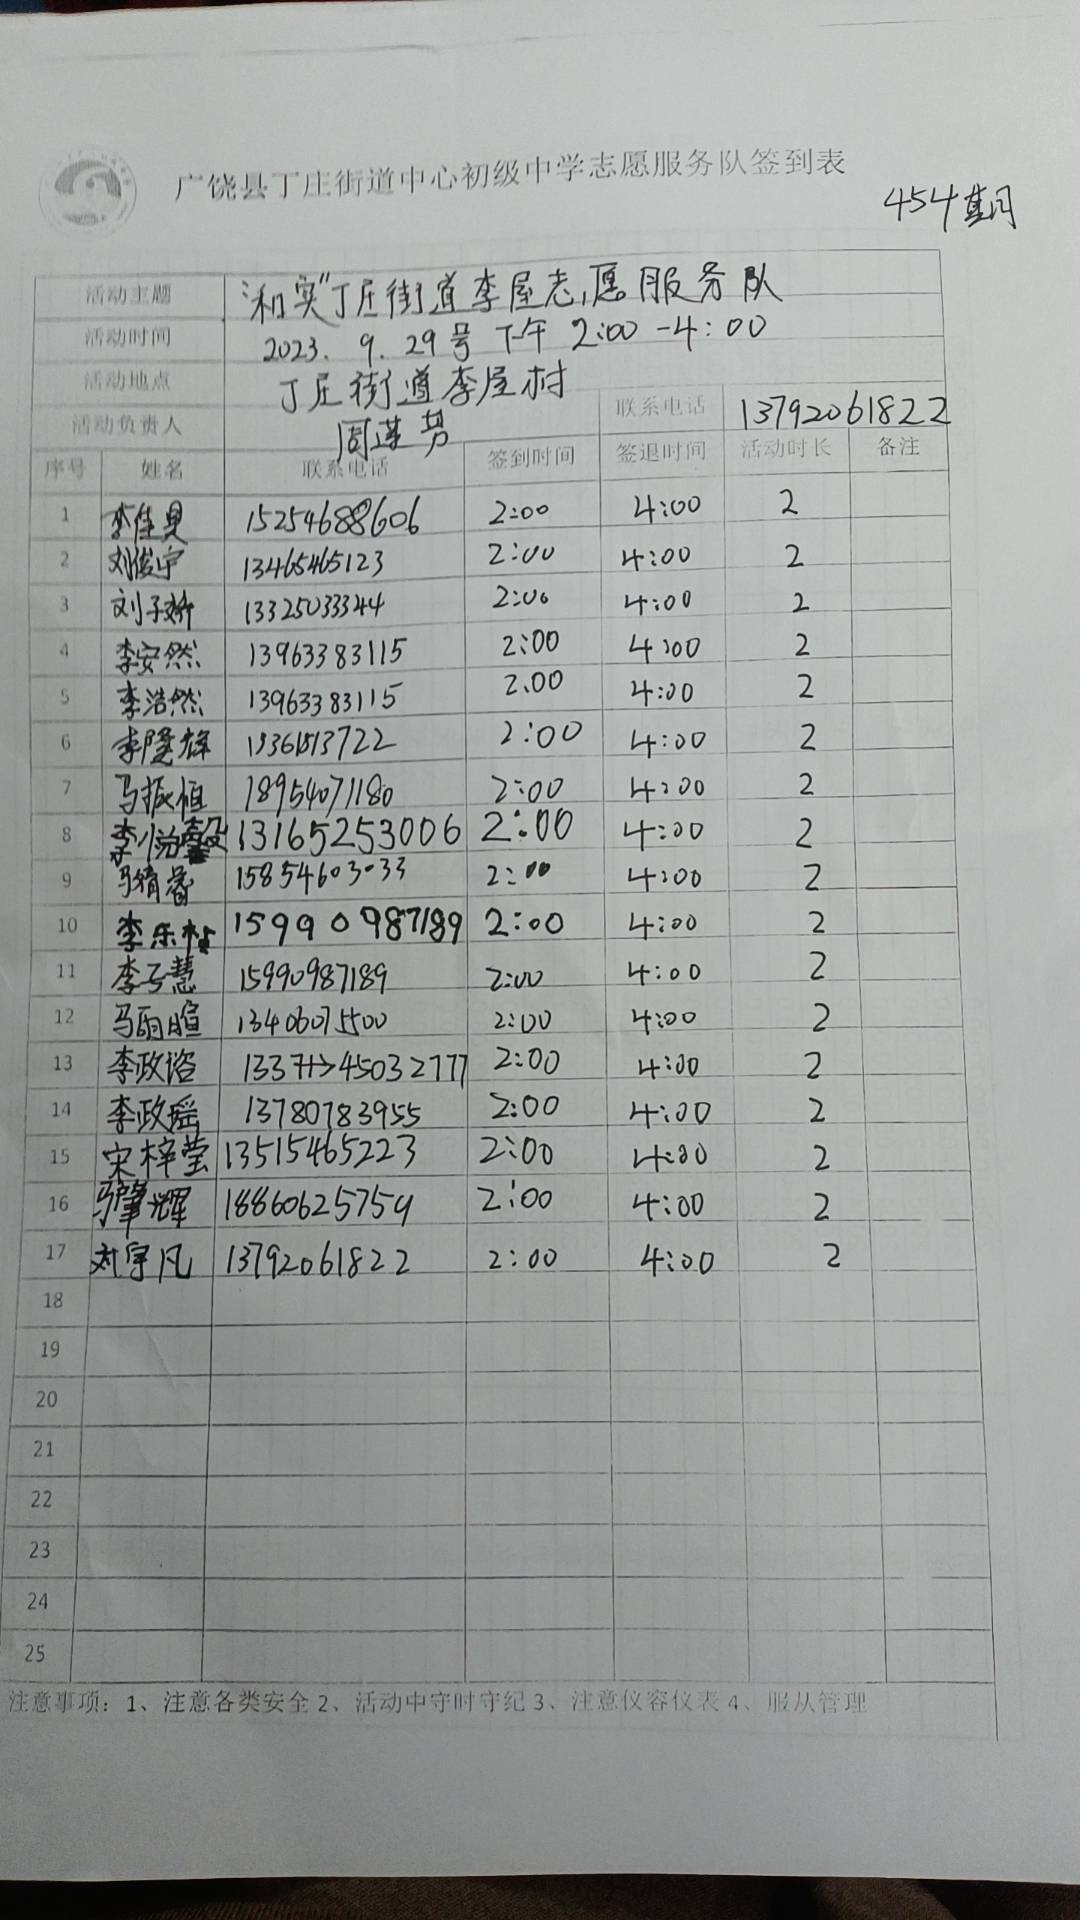 广饶县丁庄街道中心初级中学志愿服务队签到表
454期
活动主题 "和实"丁庄街道李屋志愿服务队
活动时间 2023.9.29号下午2:00-4:00
活动地点 丁庄街道李屋村
活动负责人 周莲男 联系电话 13792061822
序号 姓名 联系电话 签到时间 签退时间 活动时长 备注
1 李佳昊 15254688606 2:00 4:00 2
2 刘俊宇 13465465123 2:00 4:00 2
3 刘子娇 13325033344 2:00 4:00 2
4 李安然 13963383115 2:00 4:00 2
5 李浩然 13963383115 2.00 4:00 2
6 李隆辉 2:00 4:00 2
7 马振恒 18954071180 2:00 4:00 2
8 李怡馨 13165253006 2:00 4:00 2
9 15854603033 2:00 4:00 2
10 李乐 15990987189 2:00 4:00 2
11 李子慧 15990987189 2:00 4:00 2
12 马雨暄 13406075500 2:00 4:00 2
13 李政 2:00 4:00 2
14 李政瑶 13780783955 2:00 4:00 2
15 宋梓莹 13515465223 2:00 4:00 2
16 马肇辉 18860625759 2:00 4:00 2
17 刘宇凡 13792061822 2:00 4:00 2
18
19
20
21
22
23
24
25
注意事项：1、注意各类安全 2、活动中守时守纪 3、注意仪容仪表 4、服从管理